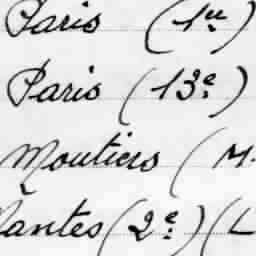 Paris (1er)
Paris (13e)
Moutiers (M.
Nantes (2e) (L